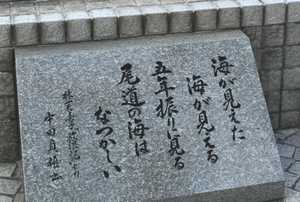 海が見えた
海が見える
五年振りに見る
尾道の海は
なつかしい
林芙美子放浪記より